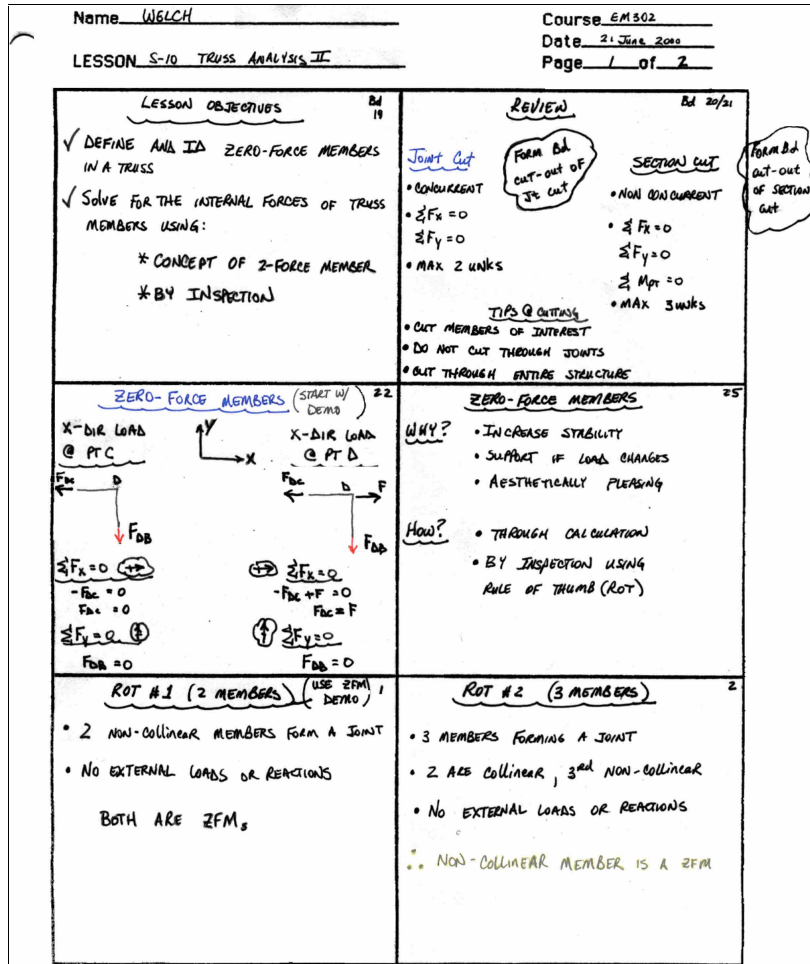 Name WELCH
Course EM302
Date 21 June 2000
LESSON S-10 TRUSS ANALYSIS II
Page 1 of 2
LESSON OBJECTIVES
Bd 19
✓ DEFINE AND ID ZERO-FORCE MEMBERS
IN A TRUSS
✓ SOLVE FOR THE INTERNAL FORCES OF TRUSS
MEMBERS USING:
* CONCEPT OF 2-FORCE MEMBER
* BY INSPECTION
REVIEW
Bd 20/21
Joint Cut
• CONCURRENT
• ΣFx = 0
ΣFy = 0
• MAX 2 UNKS
FORM Bd
cut-out of
Jt cut
SECTION CUT
• NON CONCURRENT
• ΣFx = 0
ΣFy = 0
ΣMpt = 0
• MAX 3 UNKS
FORM Bd
cut-out
OF SECTION
cut
TIPS @ CUTTING
• CUT MEMBERS OF INTEREST
• DO NOT CUT THROUGH JOINTS
• CUT THROUGH ENTIRE STRUCTURE
ZERO-FORCE MEMBERS (START W/
DEMO)
22
X-DIR LOAD
@ PT C
Y
X
FDC
D
FDB
ΣFx = 0 (+→)
-FDC = 0
FDC = 0
ΣFy = 0 (+↑)
FDB = 0
X-DIR LOAD
@ PT D
FDC
D
F
FDB
(+→) ΣFx = 0
-FDC + F = 0
FDC = F
(+↑) ΣFy = 0
FDB = 0
ZERO-FORCE MEMBERS
25
WHY?
• INCREASE STABILITY
• SUPPORT IF LOAD CHANGES
• AESTHETICALLY PLEASING
HOW?
• THROUGH CALCULATION
• BY INSPECTION USING
RULE OF THUMB (ROT)
ROT #1 (2 MEMBERS) (USE ZFM
DEMO)
1
• 2 NON-COLLINEAR MEMBERS FORM A JOINT
• NO EXTERNAL LOADS OR REACTIONS
BOTH ARE ZFMs
ROT #2 (3 MEMBERS)
2
• 3 MEMBERS FORMING A JOINT
• 2 ARE COLLINEAR, 3rd NON-COLLINEAR
• NO EXTERNAL LOADS OR REACTIONS
∴ NON-COLLINEAR MEMBER IS A ZFM